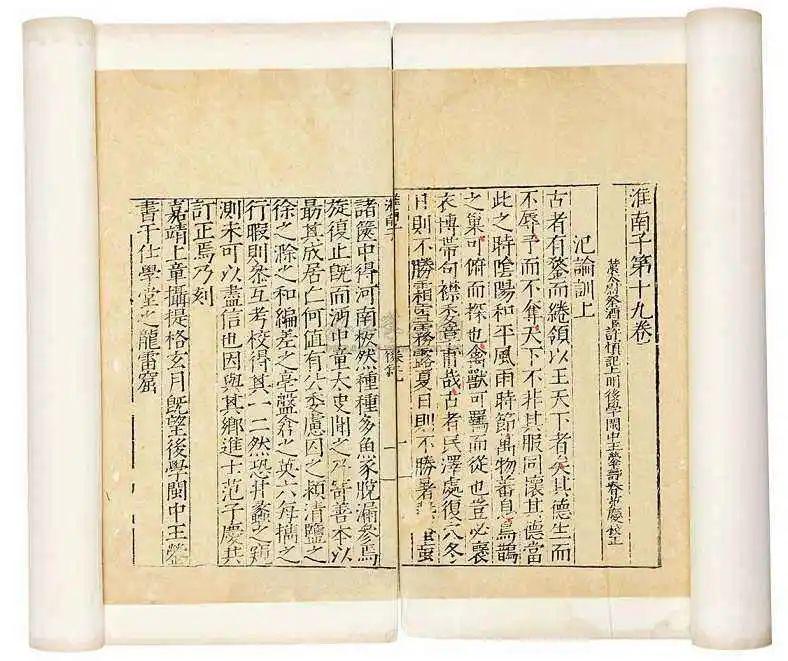 淮南子第十九卷
漢太尉祭酒臣許慎記上明後學閩中王鎣壽春范慶校正
氾論訓上
古者有鍪而綣領以王天下者矣其德生而
不辱予而不奪天下不非其服同懷其德當
此之時隂陽和平風雨時節萬物蕃息烏鵲
之巢可俯而探也禽獸可羈而從也豈必褒
衣博帶句襟委章甫哉古者民澤處復穴冬
日則不勝霜雪霧露夏日則不勝暑
淮南子
諸篋中得河南板然種種多魚豕脫漏參焉
旋復止旣而沔中童太史聞之乃寄善本以
勗其成居亡何值有公委慮囚之潁清鹽之
徐之滁之和編差之亳盤倉之英六每攜之
行暇則叅互考校得其一二然恐井蠡之窺
測未可以盡信也因與其鄉進士范子慶共
訂正焉乃刻
嘉靖上章攝提格玄月旣望後學閩中王鎣
書于仕學堂之龍雷窟